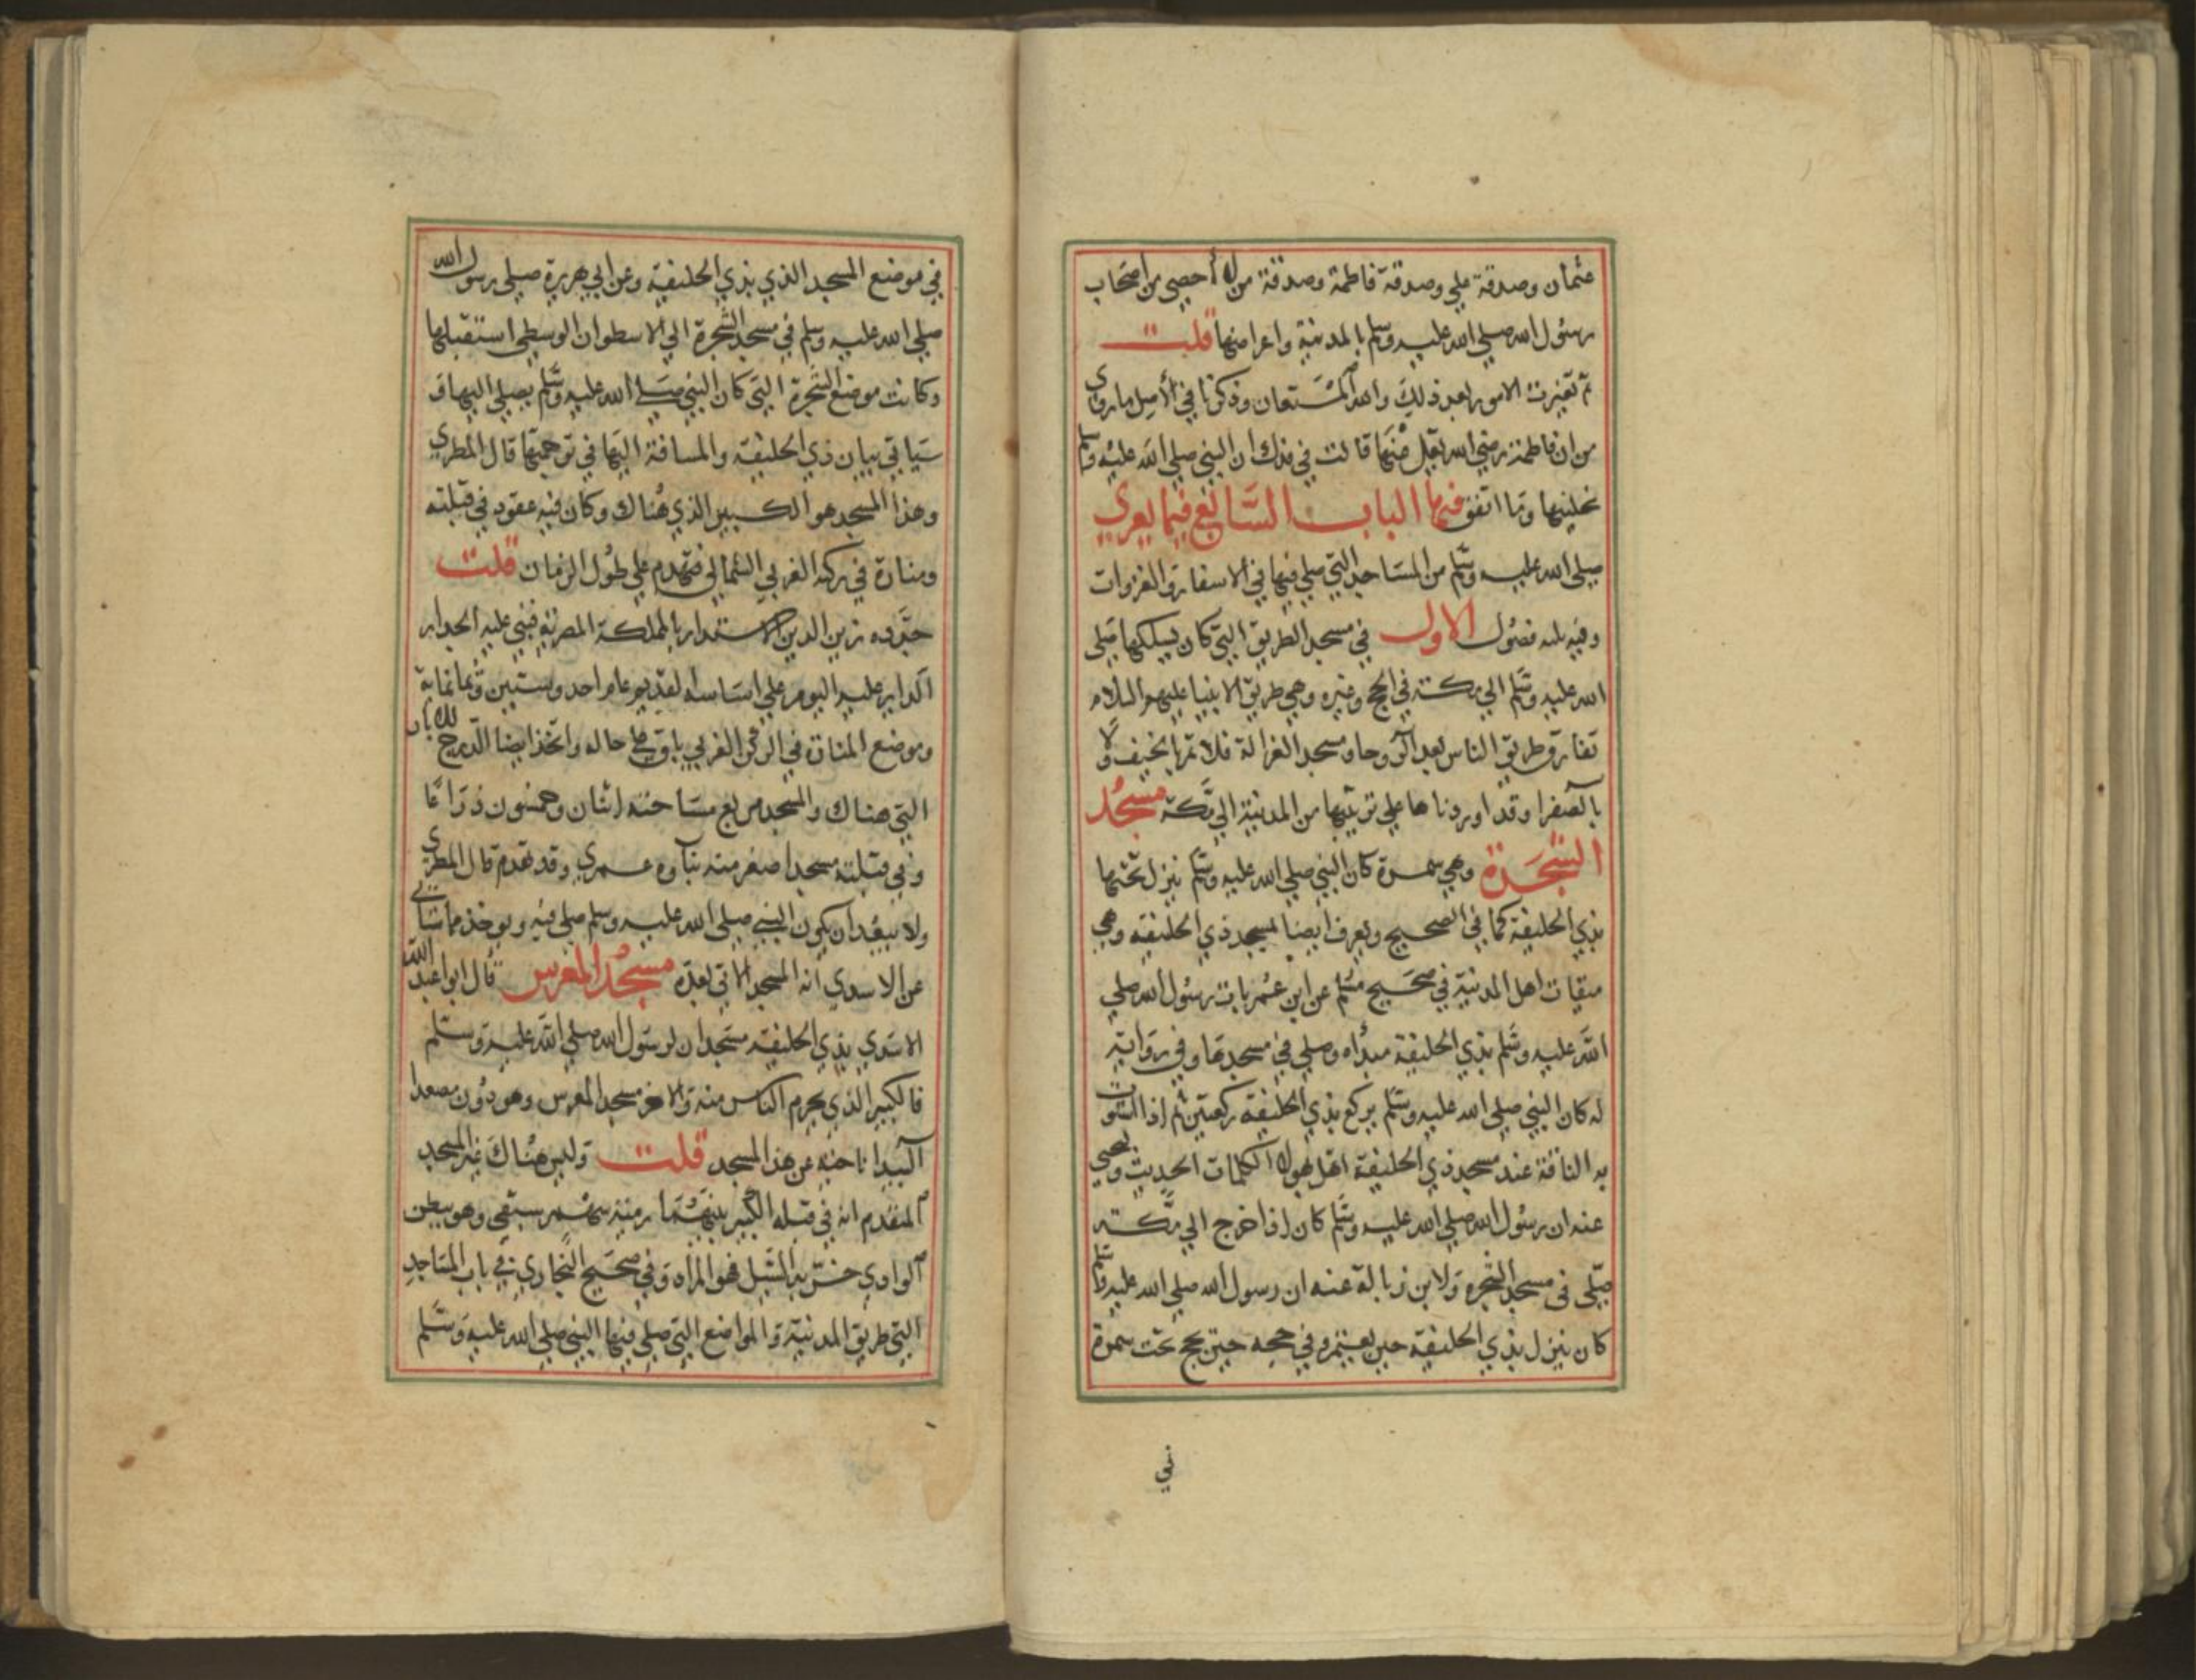 عثمان وصدقة علي وصدقة فاطمة وصدقة من لا أحصي من اصحاب
رسول الله صلى الله عليه وسلم بالمدينة واعراضها قلت
ثم تغيرت الامور بعد ذلك والله المستعان وذكرنا في الأصل ما روى
من ان فاطمة رضي الله تعلى عنها قالت في فدك ان النبي صلي الله عليه وسلم
نحلنيها وما اتفق فيها الباب السابع فيما يعزي
صلى الله عليه وسلم من المساجد التي صلي فيها في الاسفار والغزوات
وفيه ثلثه فصول الاول في مسجد الطريق التي كان يسلكها صلى
الله عليه وسلم الي مكة في الحج وغيره وهي طريق الانبيا عليهم السلام
تفارق طريق الناس بعد الروحا ومسجد الغزالة فلا تمر بالخيف ولا
بالصفرا وقد اوردناها علي ترتيبها من المدينة الي مكة مسجد
الشجرة وهي سمرة كان النبي صلي الله عليه وسلم ينزل تحتها
بذي الحليفة كما في الصحيح ويعرف ايضا بمسجد ذي الحليفة وهي
ميقات اهل المدينة في صحيح مسلم عن ابن عمر بات رسول الله صلي
الله عليه وسلم بذي الحليفة مبدأه وصلي في مسجدها وفي رواية
له كان النبي صلي الله عليه وسلم يركع بذي الحليفة ركعتين ثم اذا استوت
به الناقة عند مسجد ذي الحليفة اهل بهولا الكلمات الحديث وليحيي
عنه ان رسول الله صلي الله عليه وسلم كان اذا خرج الي مكة
صلى في مسجد الشجرة ولابن زبالة عنه ان رسول الله صلي الله عليه وسلم
كان ينزل بذي الحليفة حين يعتمر وفي حجه حين حج تحت سمرة
في
في موضع المسجد الذي بذي الحليفة وعن ابي هريرة صلى رسول الله
صلي الله عليه وسلم في مسجد الشجرة الي الاسطوان الوسطي استقبلها
وكانت موضع الشجرة التي كان النبي صلى الله عليه وسلم يصلي اليها ق
سياتي بيان ذي الحليفة والمسافة اليها في ترجمتها قال المطري
وهذا المسجد هو الكبير الذي هناك وكان فيه عقود في قبلته
ومنارة في ركنه الغربي الشمالي فتهدم علي طول الزمان قلت
جدده زين الدين الاستدار بالمملكة المصرية فبني عليه الجدار
الداير عليه اليوم علي اساسه القديم عام احد وستين وثمانماية
وموضع المنارة في الركن الغربي باق علي حاله واتخذ ايضا الدرج للابار
التي هناك والمسجد مربع مساحته اثنان وخمسون ذراعا
وفي قبلته مسجد اصغر منه بناوه عمري وقد تقدم قال المطري
ولا يبعد ان يكون النبي صلى الله عليه وسلم صلي فيه ويوخذ مما سياتي
عن الاسدي انه المسجد الاتي بعده مسجد المعرس قال ابوا عبد الله
الاسدي بذي الحليفة مسجدان لرسول الله صلي الله عليه وسلم
فالكبير الذي يحرم الناس منه والاخر مسجد المعرس وهو دون مصعد
البيدا ناحية عن هذا المسجد قلت وليس هناك غير المسجد
المتقدم انه في قبله الكبير بينهما رمية سهم سبقي وهو ببطن
الوادي خربه السيل فهو المراد وفي صحيح البخاري في باب المساجد
التي طريق المدينة والمواضع التي صلي فيها النبي صلي الله عليه وسلم